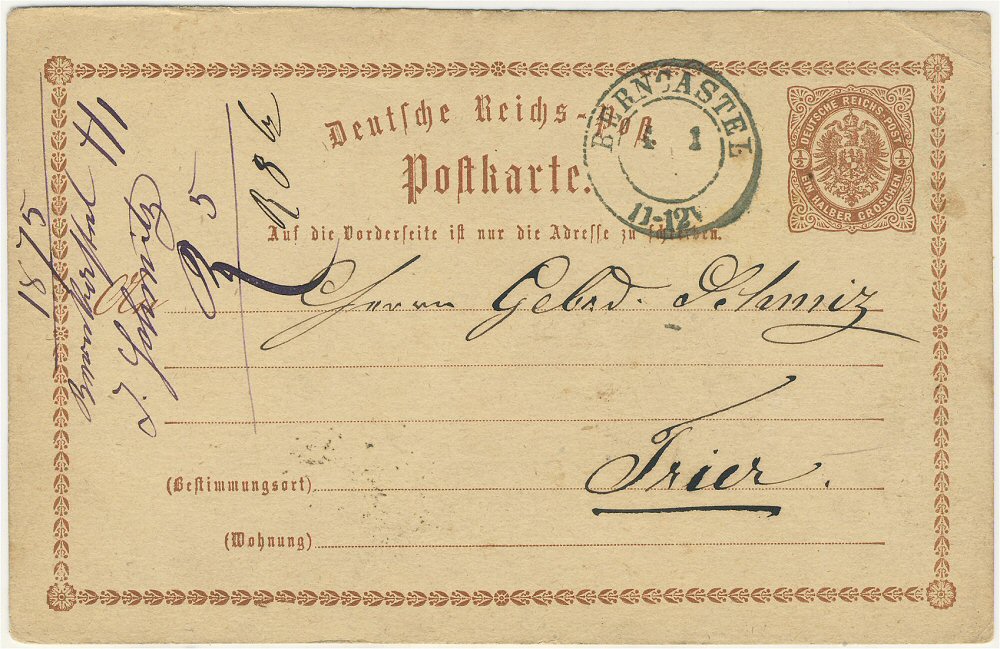 Deutsche Reichs-Post
Postkarte.
Auf die Vorderseite ist nur die Adresse zu schreiben.
BERNCASTEL
4 1
11-12V
DEUTSCHE REICHS-POST
½ ½
EIN HALBER GROSCHEN
An
Herrn Gebrd. Schmiz
Trier.
(Bestimmungsort)
(Wohnung)
1875
5